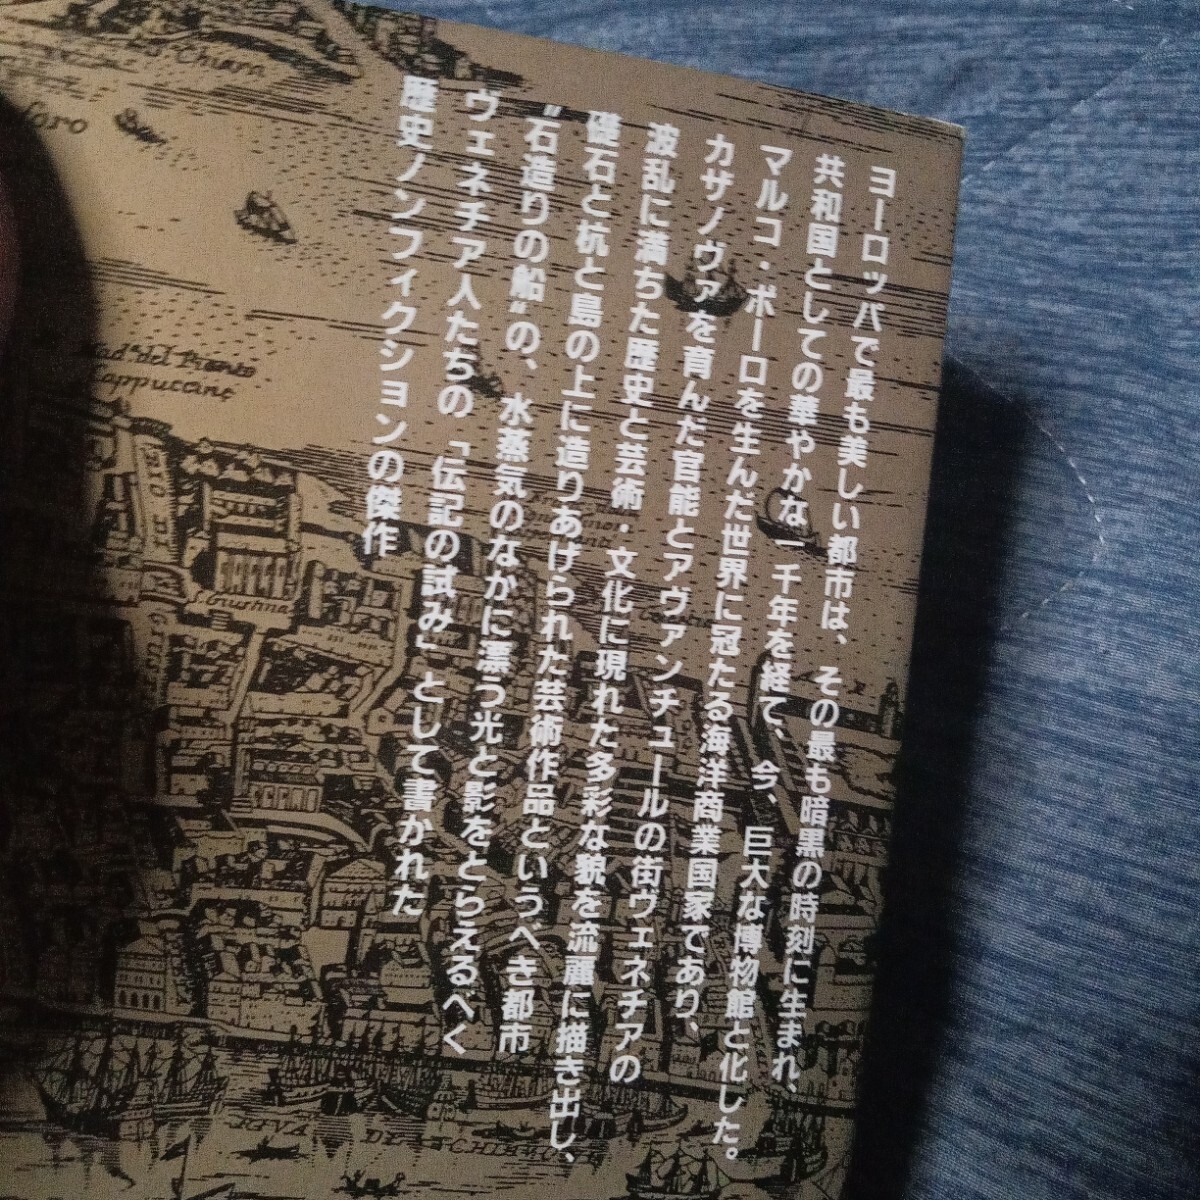 ヨーロッパで最も美しい都市は、その最も暗黒の時刻に生まれ、
共和国としての華やかな一千年を経て、今、巨大な博物館と化した。
マルコ・ポーロを生んだ世界に冠たる海洋商業国家であり、
カサノヴァを育んだ官能とアヴァンチュールの街ヴェネチアの
波乱に満ちた歴史と芸術・文化に現れた多彩な貌を流麗に描き出し、
礎石と杭と島の上に造りあげられた芸術作品というべき都市
〝石造りの船〟の、水蒸気のなかに漂う光と影をとらえるべく
ヴェネチア人たちの「伝記の試み」として書かれた
歴史ノンフィクションの傑作
Chiara
del
Cappuccine
Giustina
RIVA